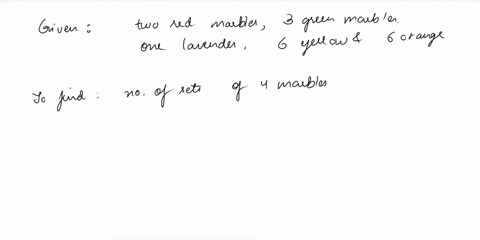 Given : two red marbles, 3 green marbles.
one lavender, 6 yellow & 6 orange
To find : no. of sets of 4 marbles